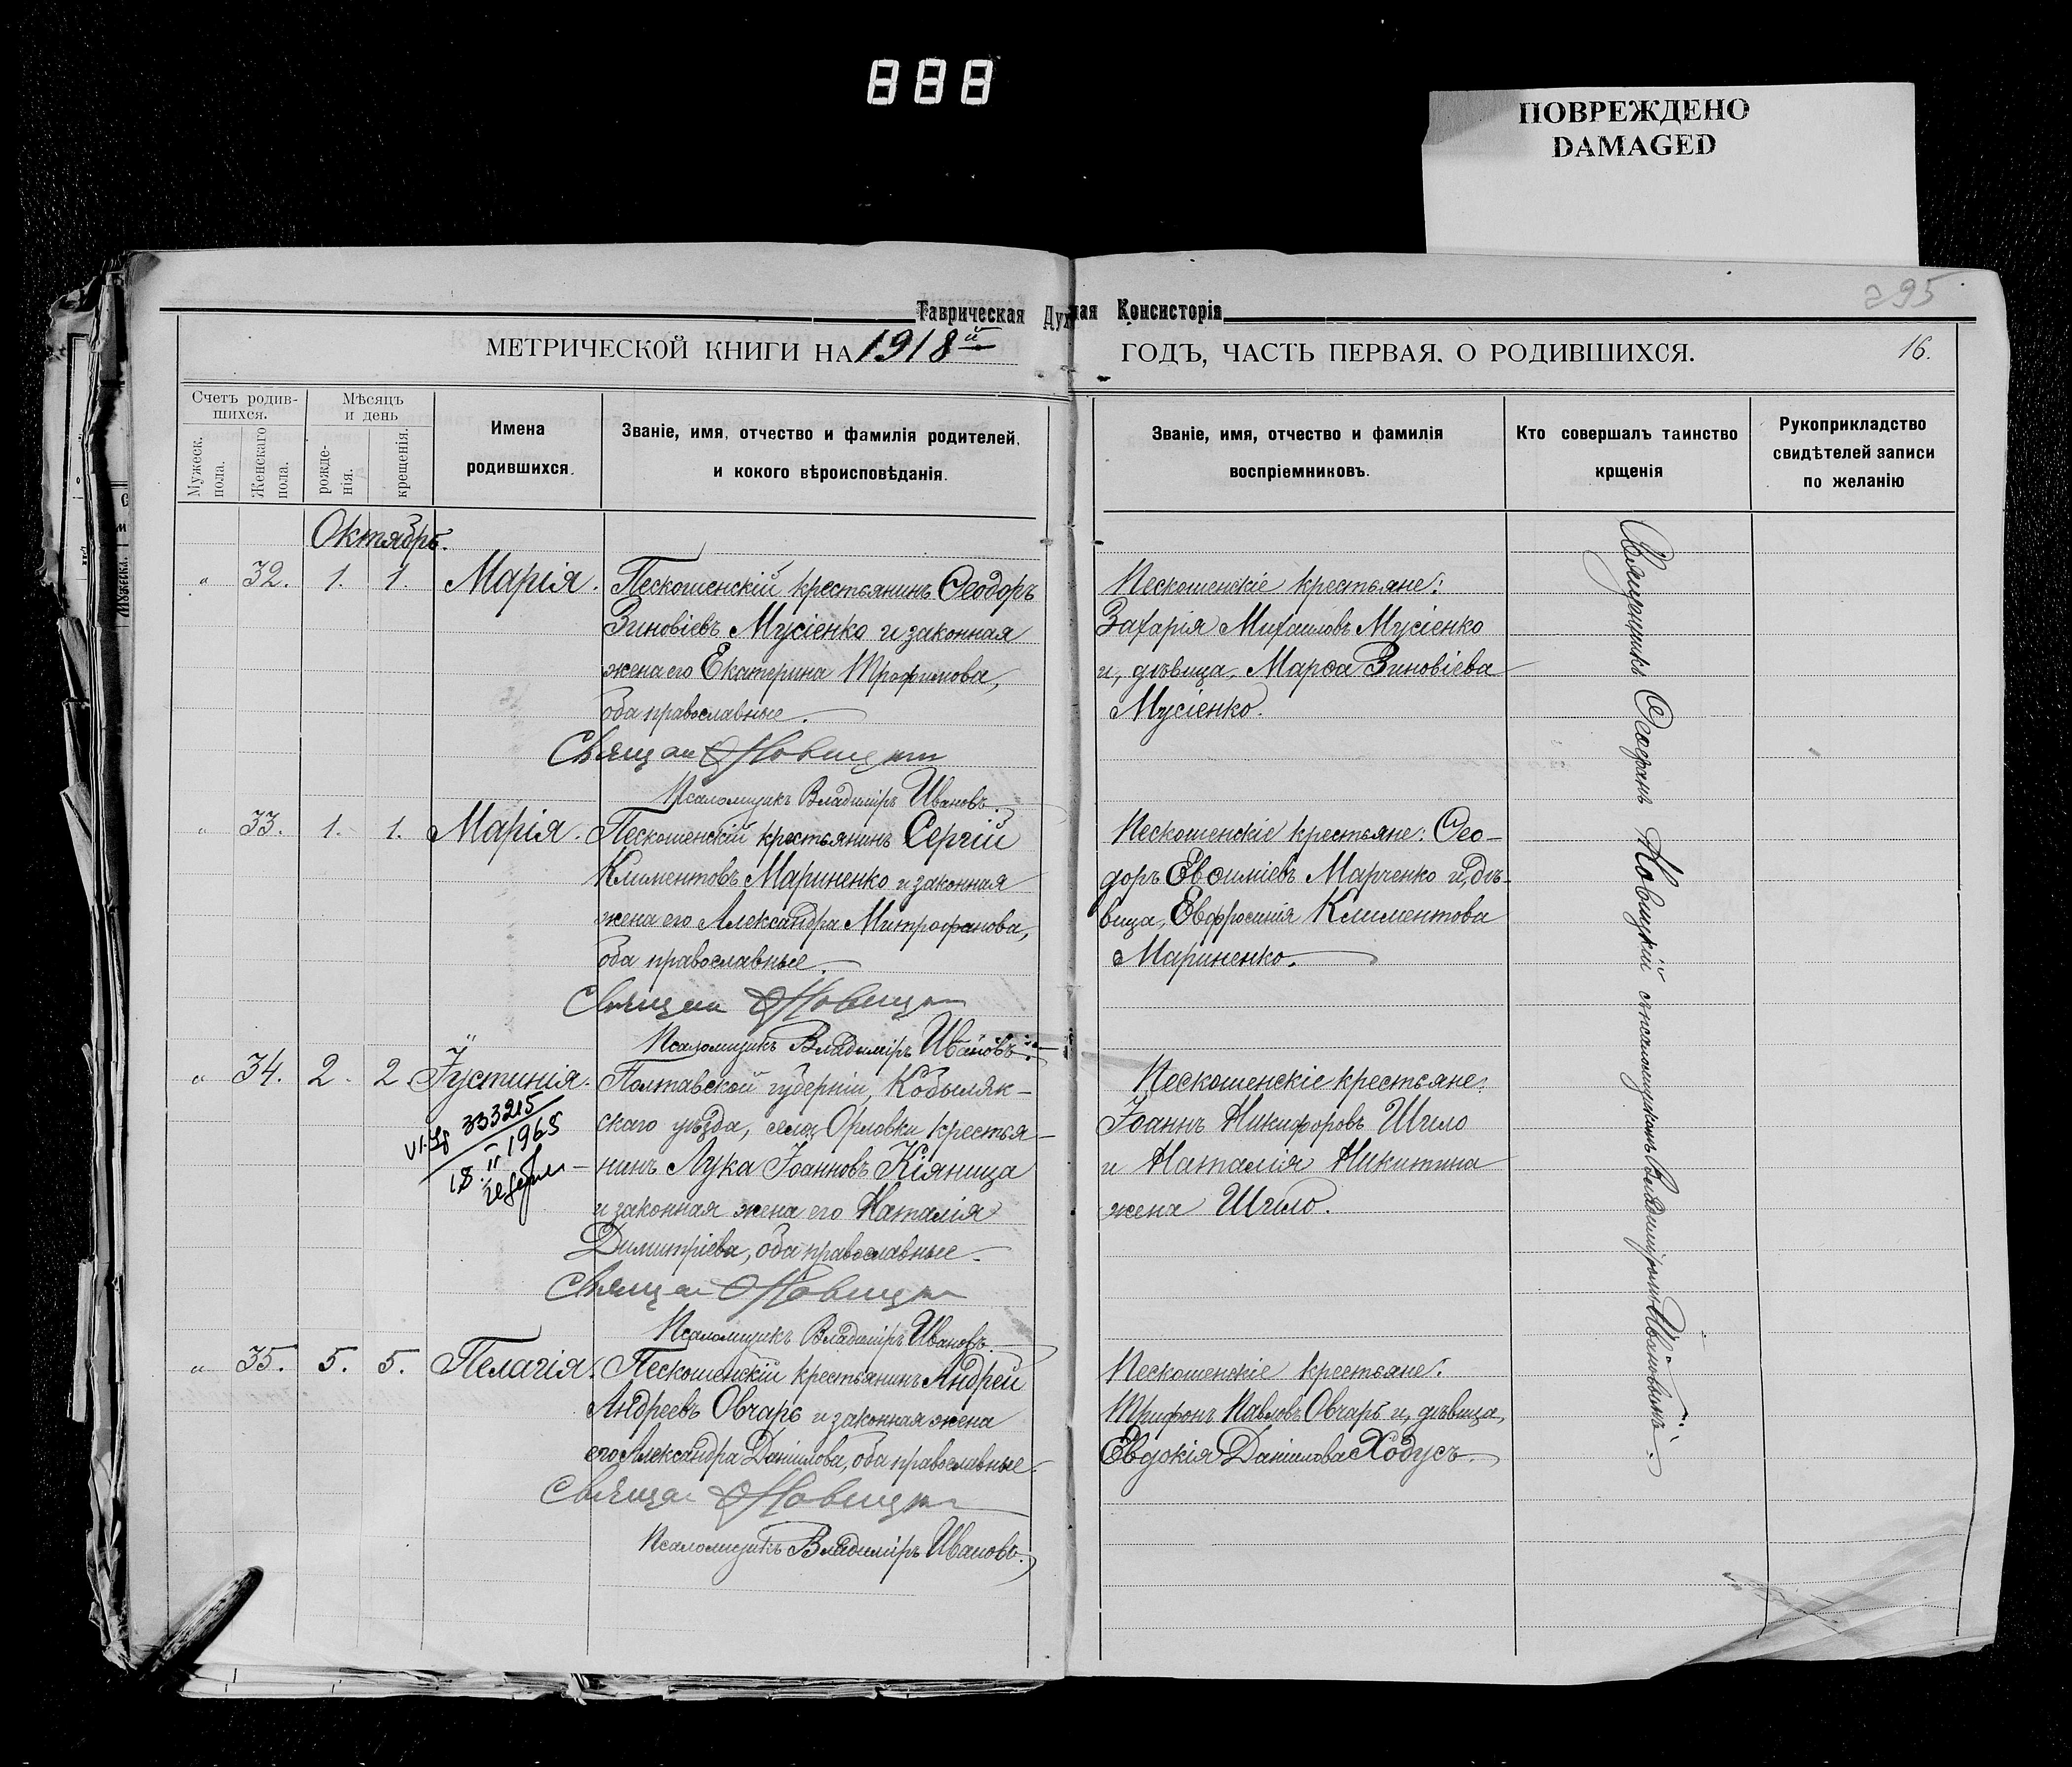 888
ПОВРЕЖДЕНО
DAMAGED
295
Таврическая Дух ная Консисторія
МЕТРИЧЕСКОЙ КНИГИ НА 1918й ГОДЪ, ЧАСТЬ ПЕРВАЯ, О РОДИВШИХСЯ. 16.
Счетъ родив-
шихся.
Мужеск.
пола.
Женскаго
пола.
Мѣсяцъ
и день
рожде-
нія.
крещенія.
Имена
родившихся.
Званіе, имя, отчество и фамилія родителей,
и кокого вѣроисповѣданія.
Званіе, имя, отчество и фамилія
воспріемниковъ.
Кто совершалъ таинство
крщенія
Рукоприкладство
свидѣтелей записи
по желанію
Октябрь.
" 32. 1. 1. Марія.
Пескошенскій крестьянинъ Ѳеодоръ
Зиновіевъ Мусіенко и законная
жена его Екатерина Трофимова,
оба православные.
Священ Ѳ Новицкій
Псаломщикъ Владиміръ Ивановъ.
Пескошенскіе крестьяне:
Захарія Михаиловъ Мусіенко
и, дѣвица, Марѳа Зиновіева
Мусіенко.
" 33. 1. 1. Марія.
Пескошенскій крестьянинъ Сергій
Климентовъ Мариненко и законная
жена его Александра Митрофанова,
оба православные.
Священ Ѳ Новицкій
Псаломщикъ Владиміръ Ивановъ.
Пескошенскіе крестьяне: Ѳео-
доръ Евѳиміевъ Марченко и, дѣ-
вица, Евфросинія Климентова
Мариненко.
" 34. 2. 2. Іустинія.
333215
18 II 1965
Полтавской губерніи, Кобыляк-
скаго уѣзда, села Орловки крестья-
нинъ Лука Іоанновъ Кіяница
и законная жена его Наталія
Димитріева, оба православные.
Священ Ѳ Новицкій
Псаломщикъ Владиміръ Ивановъ.
Пескошенскіе крестьяне:
Іоаннъ Никифоровъ Шило
и Наталія Никитина
жена Шило.
" 35. 5. 5. Пелагія.
Пескошенскій крестьянинъ Андрей
Андреевъ Овчаръ и законная жена
его Александра Даніилова, оба православные.
Священ Ѳ Новицкій
Псаломщикъ Владиміръ Ивановъ.
Пескошенскіе крестьяне:
Трифонъ Павловъ Овчаръ и, дѣвица,
Евдокія Даніилова Ходусъ.
Священникъ Ѳеофанъ Новицкій съ псаломщикомъ Владиміромъ Ивановымъ.